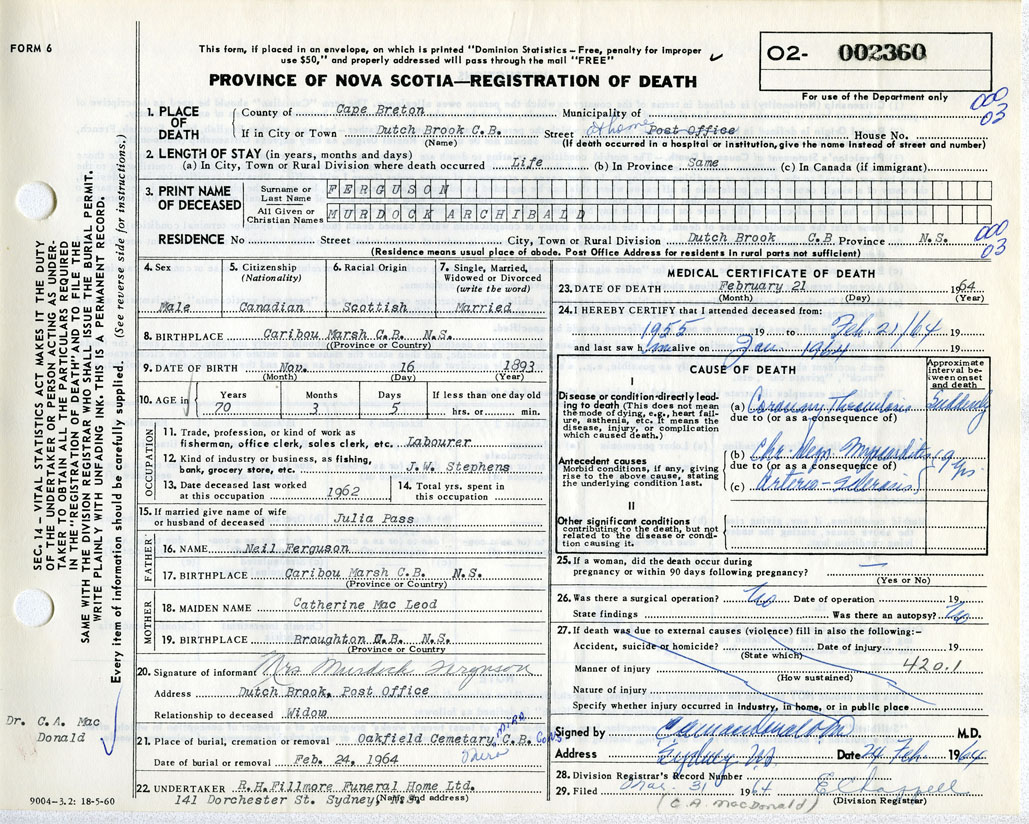 FORM 6
This form, if placed in an envelope, on which is printed "Dominion Statistics – Free, penalty for improper
use $50," and properly addressed will pass through the mail "FREE"
PROVINCE OF NOVA SCOTIA—REGISTRATION OF DEATH
O2- 002360
For use of the Department only
000
03
1. PLACE OF DEATH
County of Cape Breton Municipality of
If in City or Town Dutch Brook C.B. Street At home Post Office House No.
(Name) (If death occurred in a hospital or institution, give the name instead of street and number)
2. LENGTH OF STAY (in years, months and days)
(a) In City, Town or Rural Division where death occurred Life (b) In Province Same (c) In Canada (if immigrant)
3. PRINT NAME OF DECEASED
Surname or Last Name FERGUSON
All Given or Christian Names MURDOCK ARCHIBALD
000
03
RESIDENCE No Street City, Town or Rural Division Dutch Brook C.B. Province N.S.
(Residence means usual place of abode. Post Office Address for residents in rural parts not sufficient)
SEC. 14 – VITAL STATISTICS ACT MAKES IT THE DUTY
OF THE UNDERTAKER OR PERSON ACTING AS UNDER-
TAKER TO OBTAIN ALL THE PARTICULARS REQUIRED
IN THE "REGISTRATION OF DEATH" AND TO FILE THE
SAME WITH THE DIVISION REGISTRAR WHO SHALL ISSUE THE BURIAL PERMIT.
WRITE PLAINLY WITH UNFADING INK. THIS IS A PERMANENT RECORD.
Every item of information should be carefully supplied. (See reverse side for instructions.)
4. Sex
Male
5. Citizenship
(Nationality)
Canadian
6. Racial Origin
Scottish
7. Single, Married,
Widowed or Divorced
(write the word)
Married
8. BIRTHPLACE Caribou Marsh C.B. N.S.
(Province or Country)
9. DATE OF BIRTH Nov. 16 1893
(Month) (Day) (Year)
10. AGE in
Years Months Days If less than one day old
70 3 5 hrs. or min.
OCCUPATION
11. Trade, profession, or kind of work as
fisherman, office clerk, sales clerk, etc. Labourer
12. Kind of industry or business, as fishing,
bank, grocery store, etc. J.W. Stephens
13. Date deceased last worked
at this occupation 1962
14. Total yrs. spent in
this occupation
15. If married give name of wife
or husband of deceased Julia Pass
FATHER
16. NAME Neil Ferguson
17. BIRTHPLACE Caribou Marsh C.B. N.S.
(Province or Country)
MOTHER
18. MAIDEN NAME Catherine Mac Leod
19. BIRTHPLACE Broughton C.B. N.S.
(Province or Country)
20. Signature of informant Mrs Murdock Ferguson
Address Dutch Brook, Post Office
Relationship to deceased Widow
Dr. C.A. Mac
Donald
21. Place of burial, cremation or removal Oakfield Cemetary, C.B.
Date of burial or removal Feb. 24, 1964
22. UNDERTAKER R.H. Fillmore Funeral Home Ltd.
141 Dorchester St. Sydney, N.S.
(Name and address)
9004-3.2: 18-5-60
MEDICAL CERTIFICATE OF DEATH
23. DATE OF DEATH February 21 1964
(Month) (Day) (Year)
24. I HEREBY CERTIFY that I attended deceased from:
1955 19 to Feb. 21/64 19
and last saw him alive on Jan. 1964 19
CAUSE OF DEATH
Approximate
interval be-
tween onset
and death
I
Disease or condition directly lead-
ing to death (This does not mean
the mode of dying, e.g., heart fail-
ure, asthenia, etc. It means the
disease, injury, or complication
which caused death.)
(a) Coronary Thrombosis Suddenly
due to (or as a consequence of)
Antecedent causes
Morbid conditions, if any, giving
rise to the above cause, stating
the underlying condition last.
(b) Chr. Degn Myocarditis 9 yrs
due to (or as a consequence of)
(c) Arterio-Sclerosis
II
Other significant conditions
contributing to the death, but not
related to the disease or condi-
tion causing it.
25. If a woman, did the death occur during
pregnancy or within 90 days following pregnancy? —
(Yes or No)
26. Was there a surgical operation? No Date of operation 19
State findings Was there an autopsy? No
27. If death was due to external causes (violence) fill in also the following:–
Accident, suicide or homicide? Date of injury 19
(State which)
Manner of injury 420.1
(How sustained)
Nature of injury
Specify whether injury occurred in industry, in home, or in public place
Signed by CAMacDonald M.D.
Address Sydney NS Date 24 Feb 1964
28. Division Registrar's Record Number
29. Filed Mar. 31 1964 E Chappell
(C.A. MacDonald) (Division Registrar)